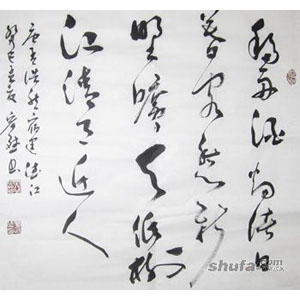 移舟泊烟渚日
暮客愁新
野旷天低树
江清月近人
唐孟浩然宿建德江
癸巳
shufa.com